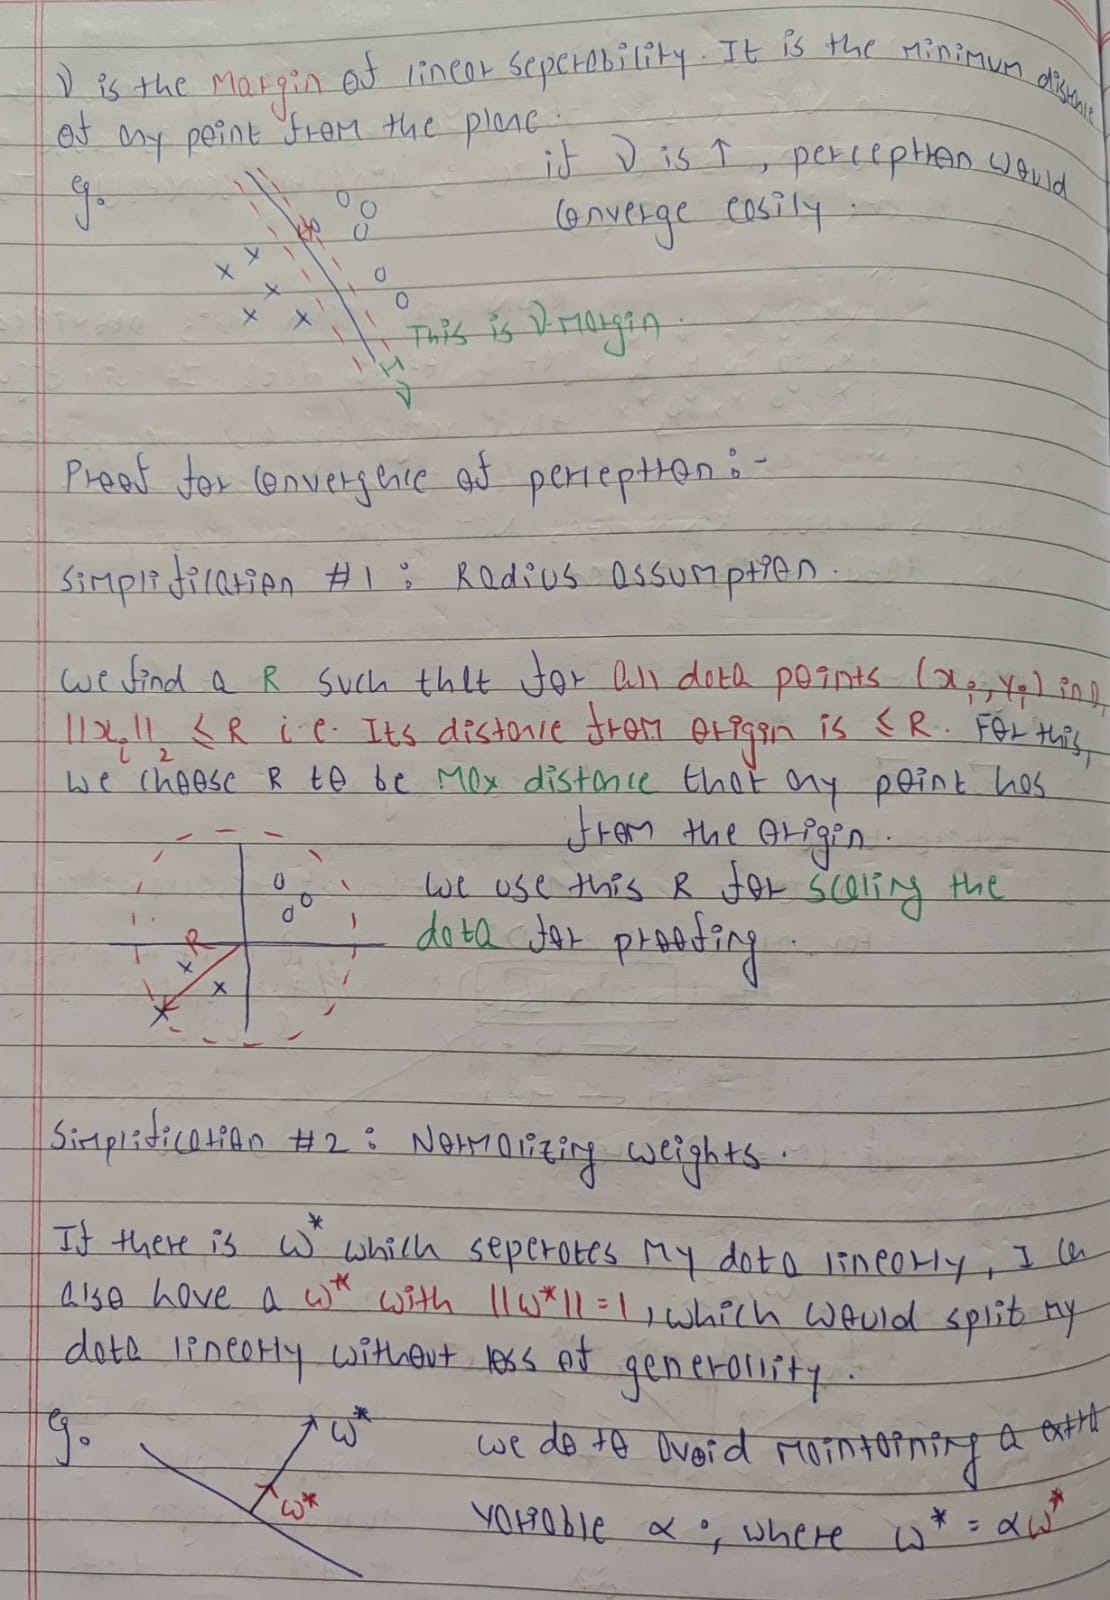 ν is the Margin of linear seperability. It is the Minimum distance
of any point from the plane.
eg.
if ν is ↑, perceptron would
Converge easily.
This is ν-Margin.
ν
Proof for Convergence of perceptron :-
Simplification #1 : Radius assumption.
We find a R such that for all data points (xᵢ, yᵢ) in D,
||xᵢ||₂ ≤ R i.e. Its distance from origin is ≤ R. For this,
we choose R to be Max distance that any point has
from the origin.
We use this R for scaling the
data for proofing.
R
Simplification #2 : Normalizing weights.
If there is ω* which seperates my data linearly, I can
also have a ω* with ||ω*|| = 1, which would split my
data linearly without loss of generallity.
eg.
ω*
ω*
we do to avoid maintaining a extra
variable α ;, where ω* = αω*